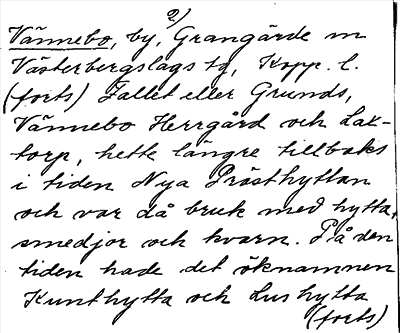 2)
Vännebo, by, Grangärde sn
Västerbergslags tg, Kopp. l.
(forts) Fallet eller Grunds,
Vännebo Herrgård och Lax-
torp, hette längre tillbaks
i tiden Nya Prästhyttan
och var då bruk med hytta,
smedjor och kvarn. På den
tiden hade det öknamnen
Kunthytta och Lushytta
(forts)